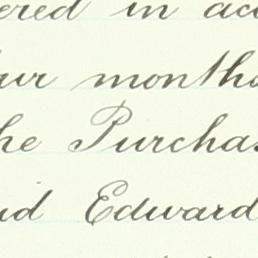 ered in acc
our months
he Purchas
aid Edward